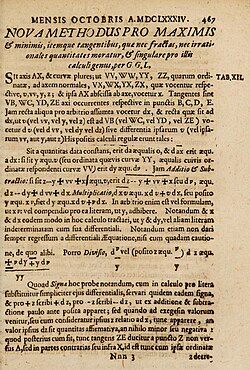 MENSIS OCTOBRIS A. MDCLXXXIV. 467
NOVA METHODUS PRO MAXIMIS
& minimis, itemque tangentibus, quæ nec fractas, nec irrati-
onales quantitates moratur, & singulare pro illis
calculi genus, per G. G. L.
Sit axis AX, & curvæ plures, ut VV, WW, YY, ZZ, quarum ordi- TAB. XII.
natæ, ad axem normales, VX, WX, YX, ZX, quæ vocentur respe-
ctive, v, w, y, z; & ipsa AX abscissa ab axe, vocetur x. Tangentes sint
VB, WC, YD, ZE axi occurrentes respective in punctis B, C, D, E.
Jam recta aliqua pro arbitrio assumta vocetur dx, & recta quæ sit ad
His positis calculi regulæ erunt tales:
Sit a quantitas data constans, erit da æqualis 0, & d ax erit æqu.
a dx: si sit y æqu. v (seu ordinata quævis curvæ YY, æqualis cuivis or-
dinatæ respondenti curvæ VV) erit dy æqu. dv. Jam Additio & Sub-
tractio: si sit z - y + w + x æqu. v, erit d z - y + w + x seu dv, æqu.
dz - dy + dw + dx. Multiplicatio, d xv æqu. x dv + v dx, seu posito
y æqu. xv, fiet dy æqu. x dv + v dx. In arbitrio enim est vel formulam,
ut xv, vel compendio pro ea literam, ut y, adhibere. Notandum & x
& dx eodem modo in hoc calculo tractari, ut y & dy, vel aliam literam
indeterminatam cum sua differentiali. Notandum etiam non dari
semper regressum a differentiali Æquatione, nisi cum quadam cautio-
ne, de quo alibi. Porro Divisio, d v/y vel (posito z æqu. v/y) dz æqu.
Quoad Signa hoc probe notandum, cum in calculo pro litera
substituitur simpliciter ejus differentialis, servari quidem eadem signa,
& pro + z scribi + dz, pro - z scribi - dz, ut ex additione & subtra-
ctione paulo ante posita apparet; sed quando ad exegesin valorum
venitur, seu cum consideratur ipsius z relatio ad x, tunc apparere, an
valor ipsius dz sit quantitas affirmativa, an nihilo minor seu negativa:
quod posterius cum fit, tunc tangens ZE ducitur a puncto Z non ver-
sus A, sed in partes contrarias seu infra X, id est tunc cum ipsæ ordinatæ
Nnn 3 z decre-